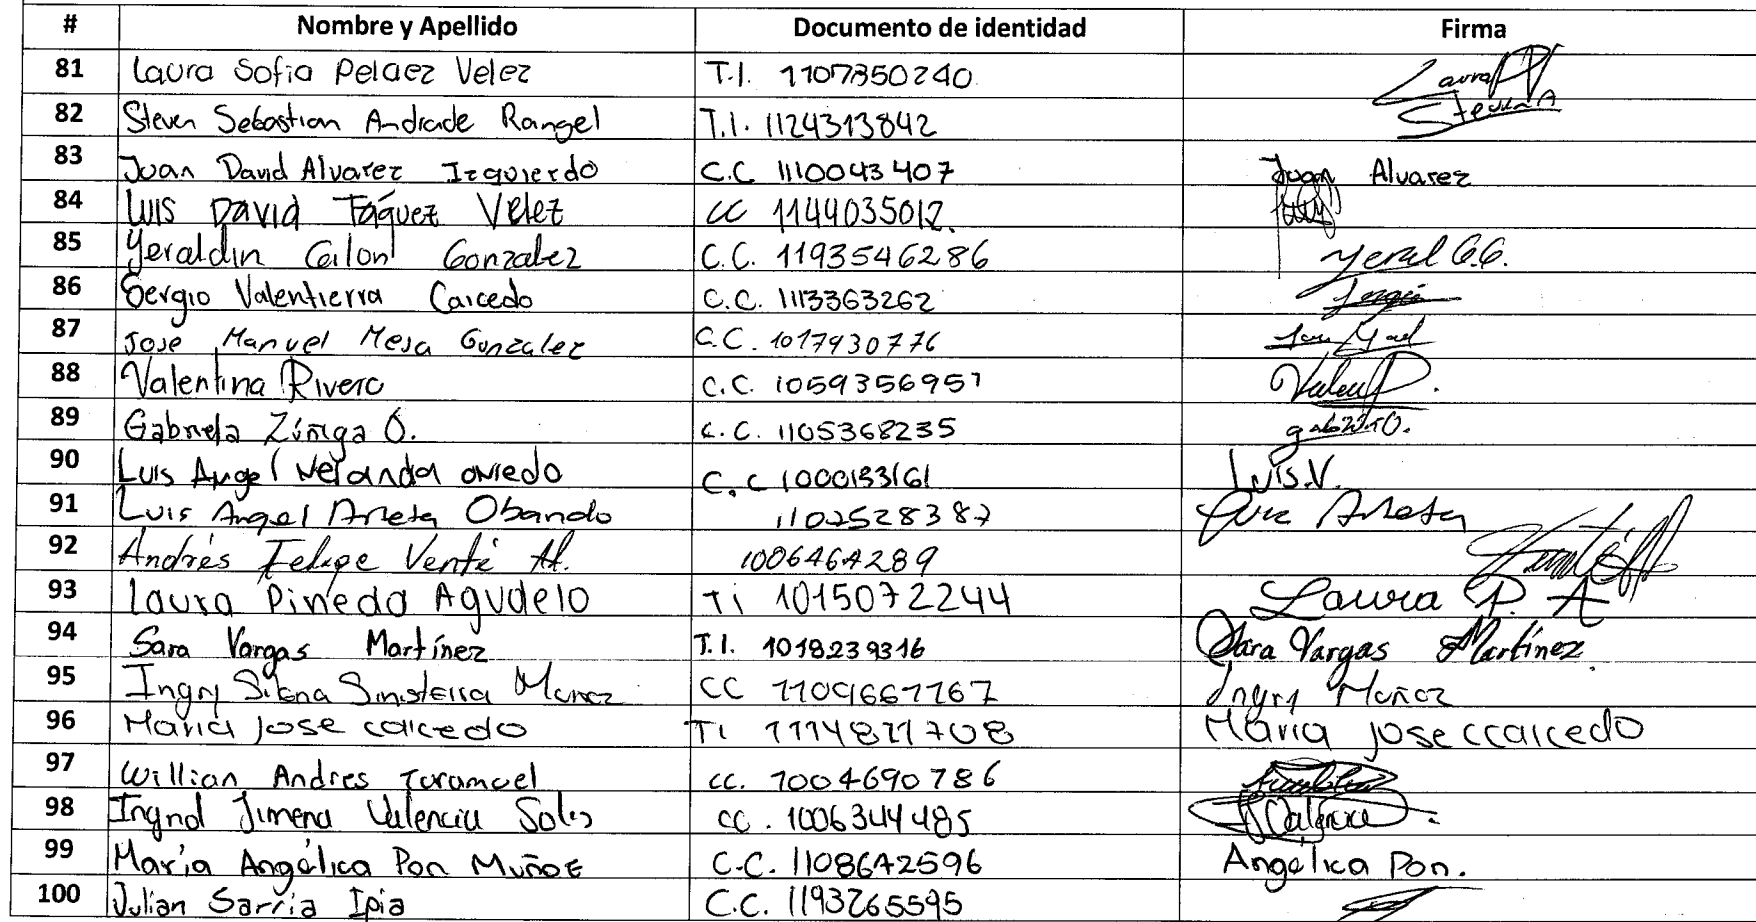 # Nombre y Apellido Documento de identidad Firma
81 Laura Sofia Pelaez Velez T.I. 1107850240 Laura
82 Steven Sebastian Andrade Rangel T.I. 1124313842 Steven A
83 Juan David Alvarez Izquierdo C.C 1110043407 Juan Alvarez
84 LUIS DAVID Táquez Velez CC 1144035012
85 Yeraldin Colon Gonzalez C.C. 1193546286 Yeral G.G.
86 Sergio Valentierra Caicedo C.C. 1113363262 Sergio
87 Jose Manuel Mesa Gonzalez C.C. 1017930776
88 Valentina Rivera C.C. 1059356957
89 Gabriela Zúñiga O. C.C. 1105368235
90 Luis Angel Oviedo C.C 1000193161 Luis.V.
91 Luis Angel Arieta Obando 1102528387
92 Andrés Felipe Venté M. 1006464289
93 Laura Pineda Agudelo Ti 1015072244 Laura P. A
94 Sara Vargas Martínez T.I. 1018239316 Sara Vargas Martínez
95 Ingry Sinisterra Muñoz CC 1109661167 Ingry Muñoz
96 Maria Jose Caicedo Ti 1114871708 Maria Jose Ccaicedo
97 Willian Andres CC. 1004690786
98 Ingrid Jimena Valencia Solis CC. 1006344485 Valencia
99 María Angélica Pon Muñoz C.C. 1108642596 Angélica Pon.
100 Julian Sarria Ipia C.C. 1193265595